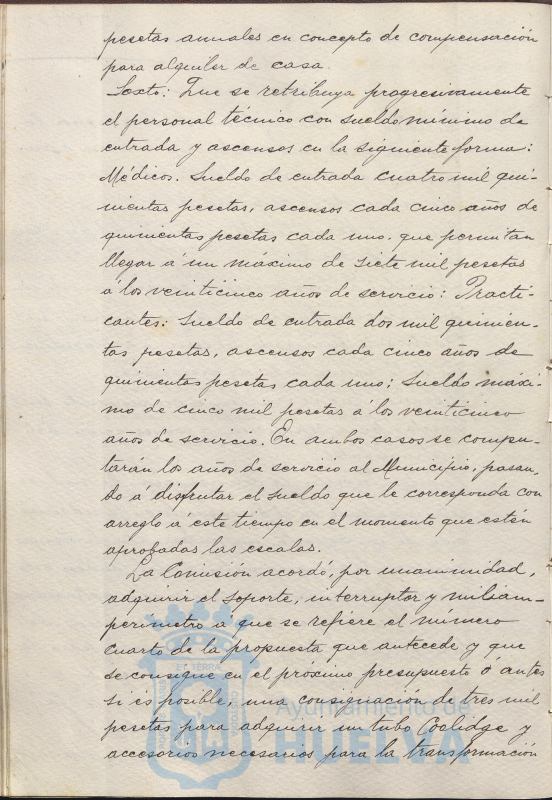 pesetas anuales en concepto de compensación
para alquiler de casa.
Sexto: Que se retribuya progresivamente
el personal técnico con sueldo mínimo de
entrada y ascensos en la siguiente forma:
Médicos. Sueldo de entrada cuatro mil qui-
nientas pesetas, ascensos cada cinco años de
quinientas pesetas cada uno, que permitan
llegar á un máximo de siete mil pesetas
á los veinticinco años de servicio: Practi-
cantes: Sueldo de entrada dos mil quinien-
tas pesetas, ascensos cada cinco años de
quinientas pesetas cada uno; sueldo máxi-
mo de cinco mil pesetas á los veinticinco
años de servicio. En ambos casos se compu-
tarán los años de servicio al Municipio, pasan-
do á disfrutar el sueldo que le corresponda con
arreglo á este tiempo en el momento que estén
aprobadas las escalas.
La Comisión acordó, por unanimidad,
adquirir el soporte, interruptor y miliam-
perimetro a que se refiere el número
cuarto de la propuesta que antecede y que
se consigue en el próximo presupuesto ó antes
si es posible, una consignación de tres mil
pesetas para adquirir un tubo Coolidge y
accesorios necesarios para la transformación
ET TERRA
Ayuntamiento de
HUELVA